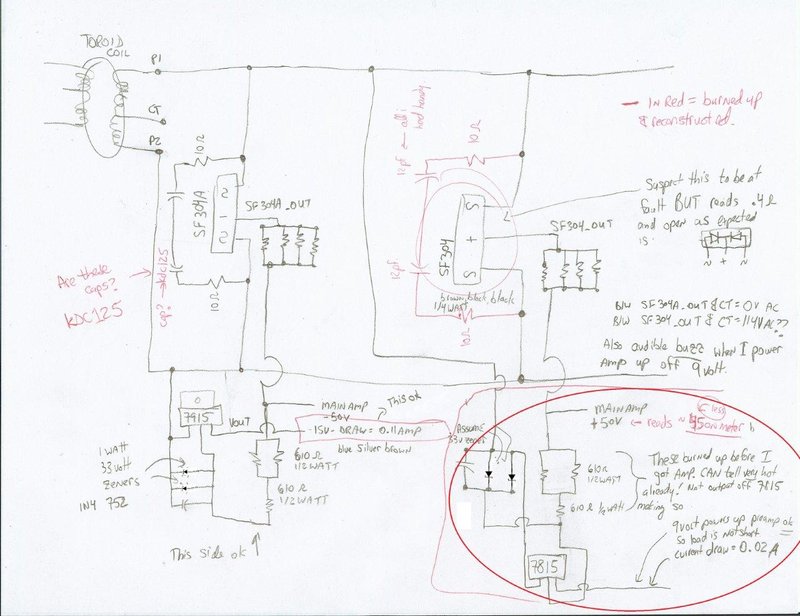 TOROID
COIL
P1
CT
P2
10Ω
SF304A
2
1
2
SF304A_OUT
10Ω
Are these
caps?
KDC125
cap? → kdc125
12pf ← all i
had handy
10Ω
12pf
SF304
S
+
S
SF304_OUT
brown, black, black
1/4 WATT
10Ω
— IN Red = burned up
& reconstructed.
Suspect this to be at
fault BUT reads .4Ω
and open as expected
is.
~ + ~
B/W SF304A_OUT & CT = 0V AC
B/W SF304_OUT & CT = 114VAC??
Also audible buzz when I power
Amp up off 9volt.
0
7915
VOUT
MAIN AMP
-50V
This ok
-15V- DRAW = 0.11Amp
blue silver brown
1 WATT
33 volt
Zeners
1N4752
610Ω
1/2WATT
610Ω
1/2WATT
This side ok ↑
ASSUME
33V zeners
MAIN AMP
+50V ← reads ~
less
610Ω
1/2WATT
610Ω 1/2WATT
These burned up before I
got Amp. CAN tell very hot
already! Not output off 7815
making so
7815
9volt powers up preamp ok
so load is not short
current draw = 0.02A